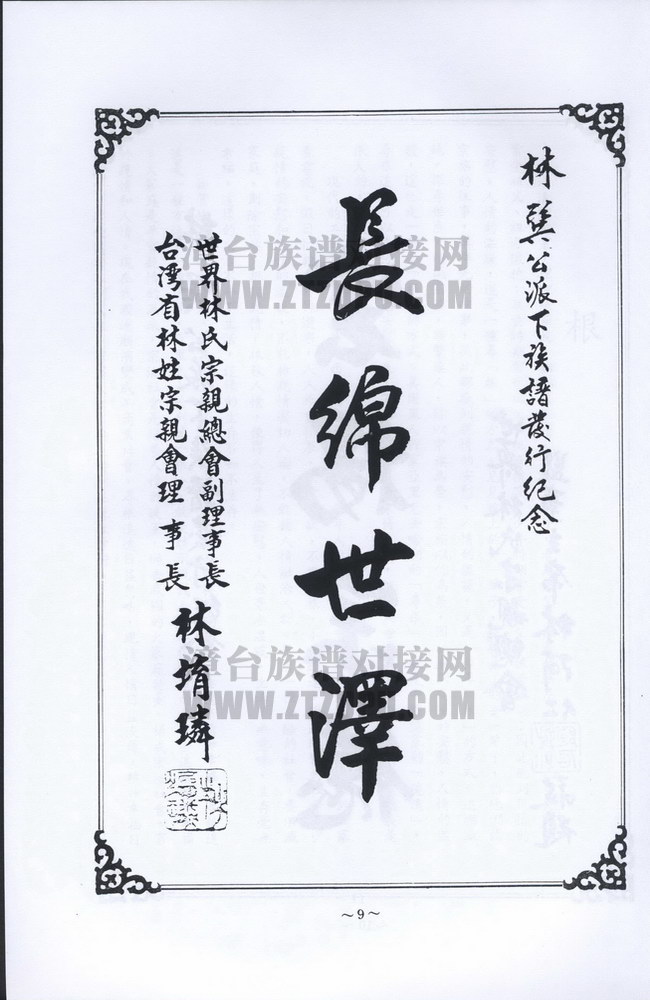 林巽公派下族譜發行紀念
長綿世澤
世界林氏宗親總會副理事長
台灣省林姓宗親會理事長
林堉璘
漳台族谱对接网
WWW.ZTZPW.COM
漳台族谱对接网
WWW.ZTZPW.COM
~9~